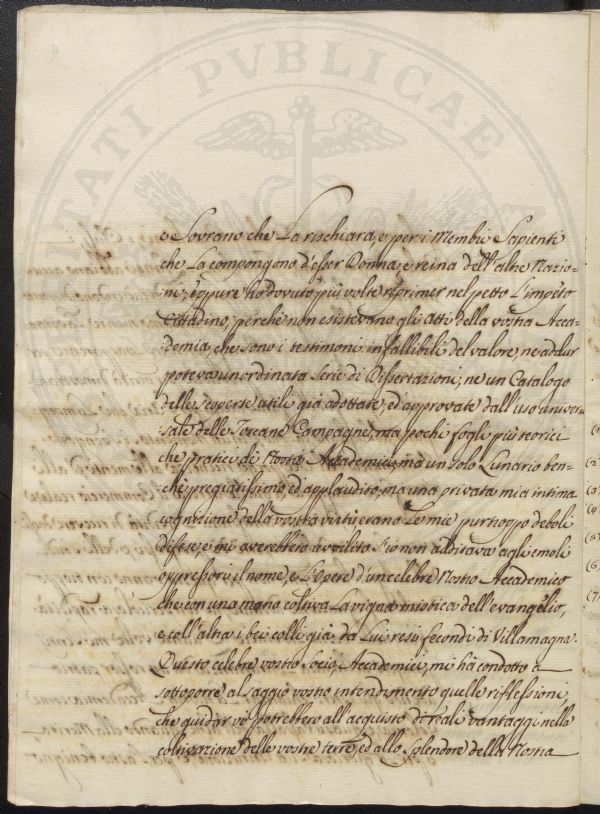 PUBLICAE
e Sovrano che La rischiara, e per i Membri Sapienti
che La compongono d'esser Donna, e reina dell'altre Nazio-
ni; eppure ho dovuto più volte reprimer nel petto l'impeto
Cittadino, perchè non esistevano gli Atti della vostra Acca-
demia, che sono i testimoni infallibili del valore, ne addur
poteva un'ordinata serie di Dissertazioni, ne un Catalogo
delle scoperte utili già adottate, ed approvate dall'uso univer-
sale delle Toscane Campagne, ma pochi fogli più teorici
che pratici de' Nostri Accademici, ma un solo Lunario ben-
chè pregiatissimo ed applaudito, ma una privata mia intima
cognizione della vostra virtù erano Le mie purtroppo deboli
difese, e mi averebbero avvilito s'io non additava agli emoli
oppressori il nome, e L'opere d'un celebre Nostro Accademico
che con una mano coltiva La vigna mistica dell'evangelio,
e coll'altra i bei colli già da Lui resi fecondi di Villamagna.
Questo celebre vostro Socio, Accademici, mi ha condotto a
sottoporre al saggio vostro intendimento quelle riflessioni,
che guidar vi potrebbero all'acquisto di reali vantaggi nella
coltivazione delle vostre terre, ed allo splendore della Nostra